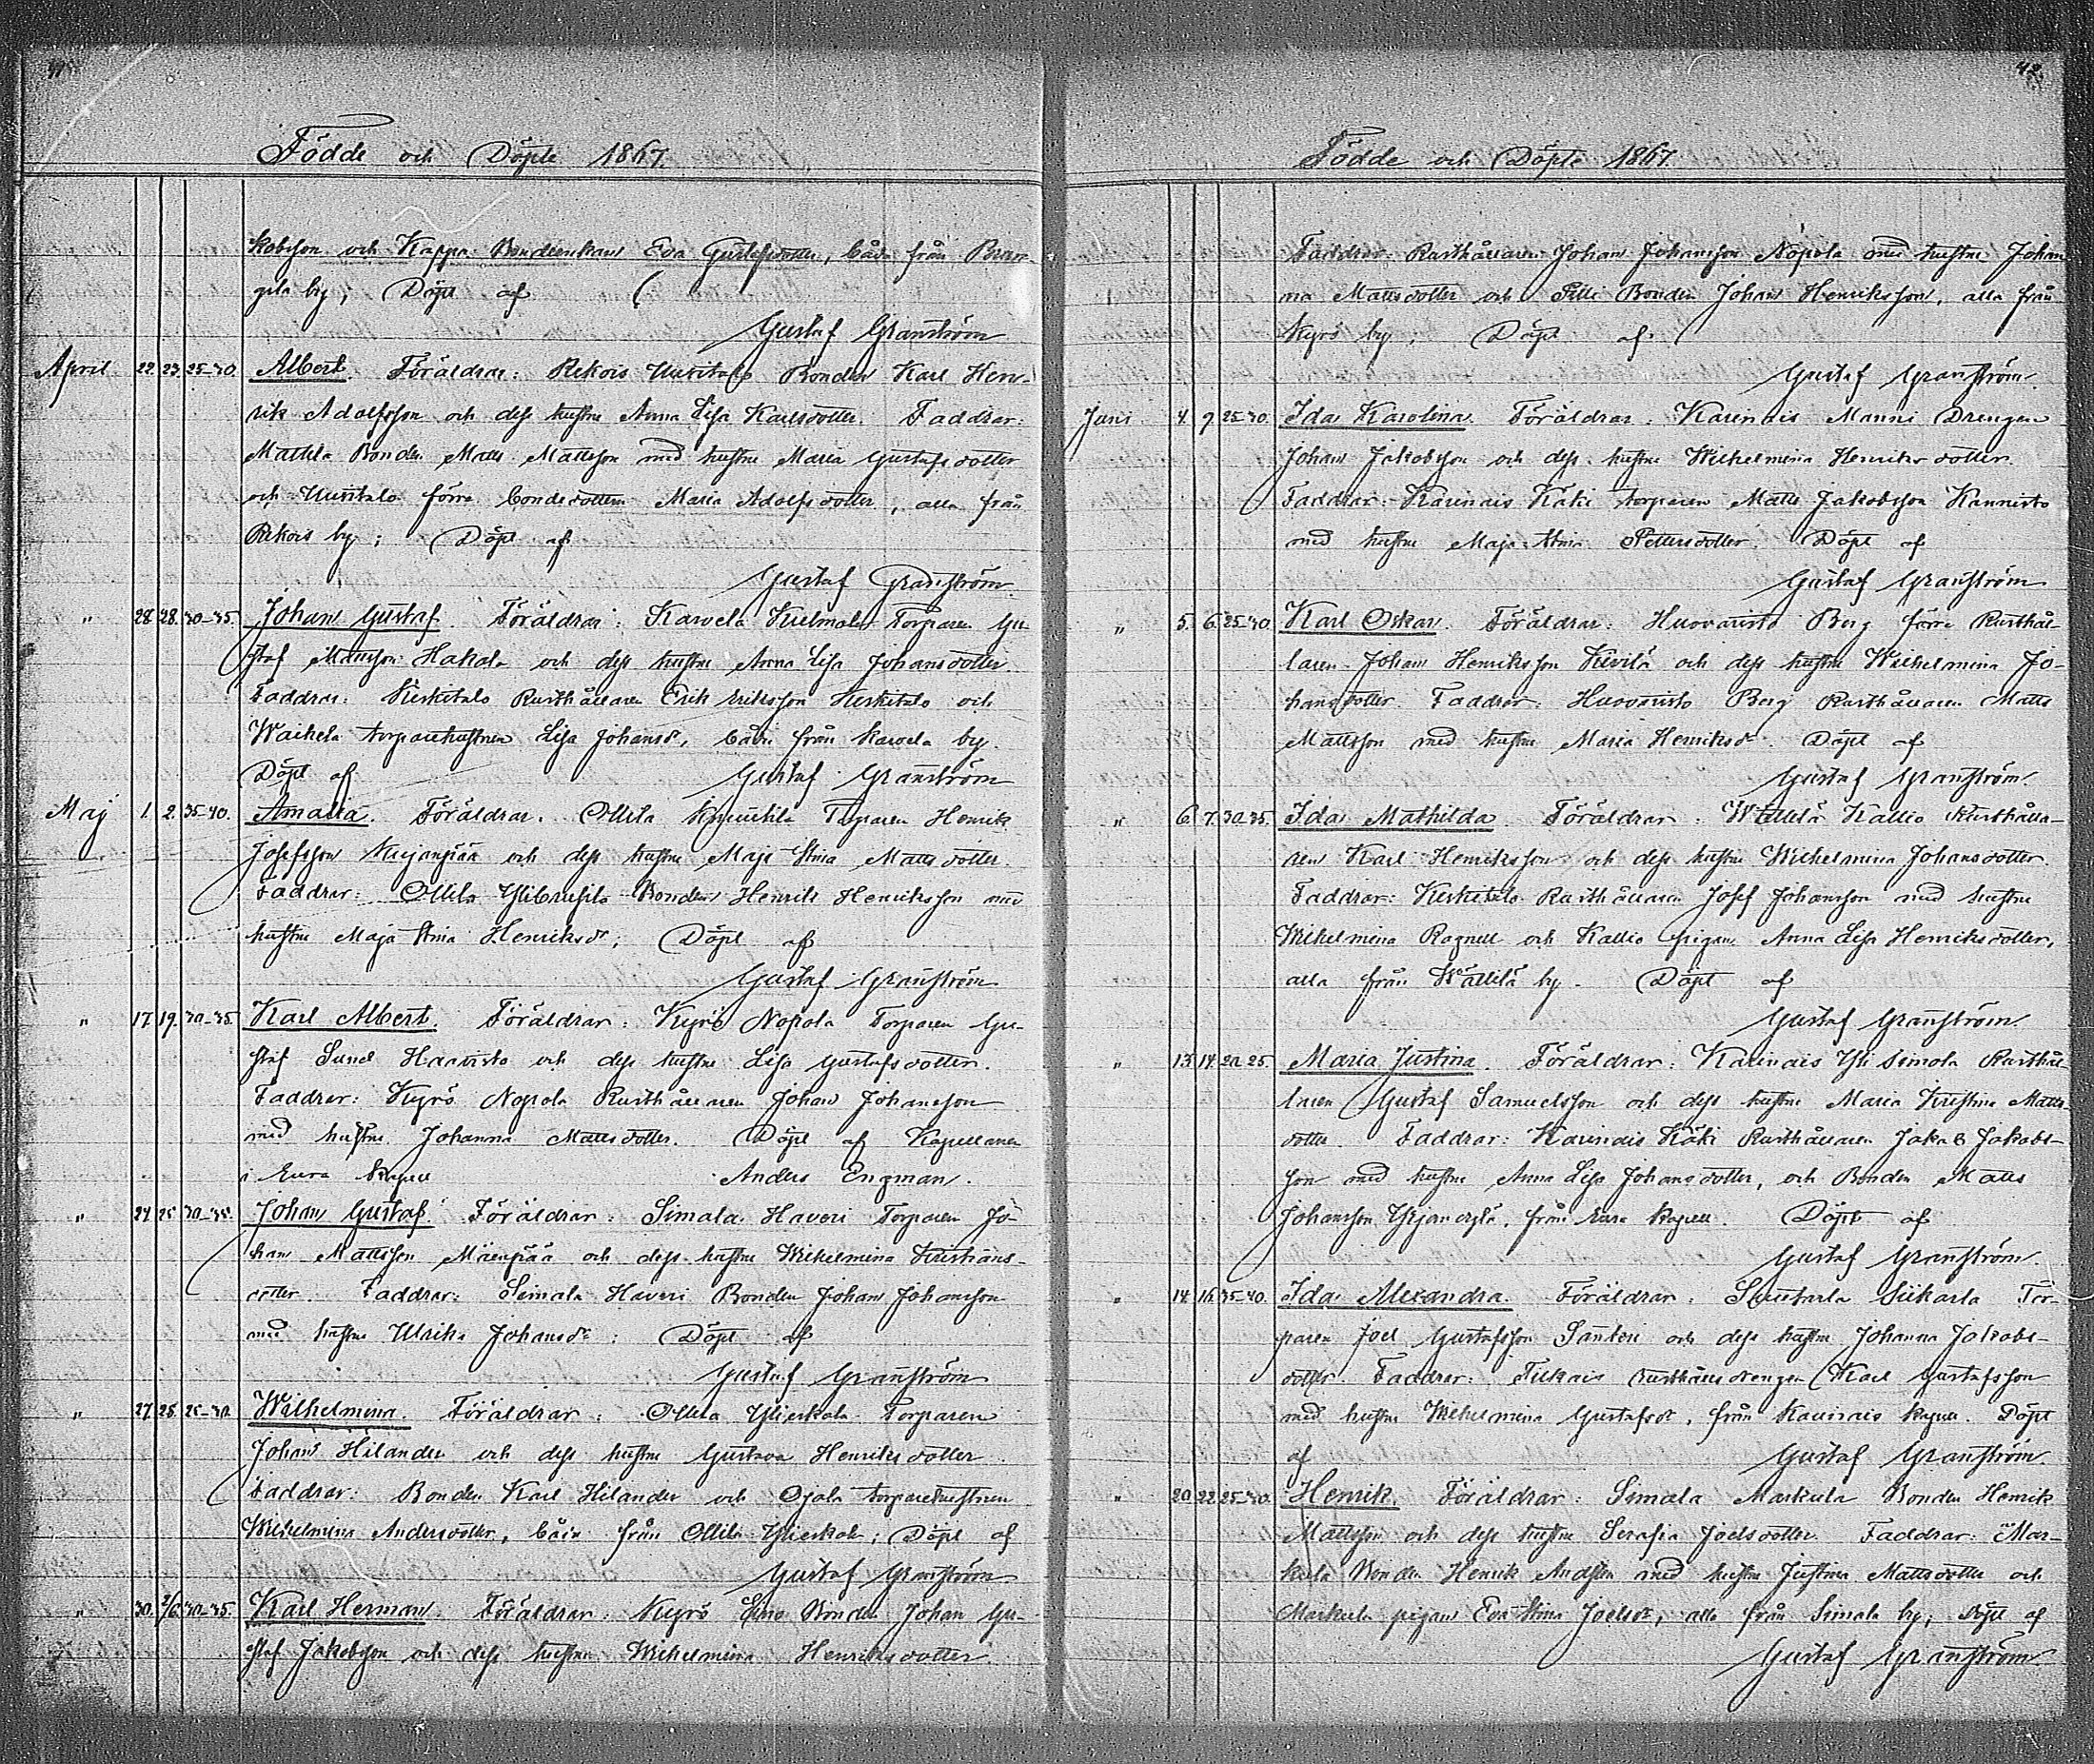 41
Födde och Döpte 1867.
kobsson och Kappa Bondeenkan Eva Gustafsdotter, båda från
by; Döpt af
Gustaf Granström
April 22. 23. 25-30. Albert. Föräldrar: Rekois Uusitalo Bonden Karl Hen-
rik Adolfsson och dess hustru Anna Lisa Karlsdotter. Faddrar:
Mattila Bonden Matts Mattsson med hustru Maria Gustafsdotter
och Uusitalo förre bondedottern Maria Adolfsdotter, alla från
Rekois by; Döpt af
Gustaf Granström.
" 28. 28. 30-35. Johan Gustaf. Föräldrar: Karvela Torparen Gu-
staf Mattsson Hakala och dess hustru Anna Lisa Johansdotter.
Faddrar: Keskitalo Rusthållaren Erik Eriksson Keskitalo och
torparehustrun Lisa Johansdr, båda från Karvela by.
Döpt af Gustaf Granström
Maj 1. 2. 35-40. Amalia. Föräldrar: Ollila Torparen Henrik
Josefsson och dess hustru Maja Stina Mattsdotter.
Faddrar: Ollila Bonden Henrik Henriksson med
hustru Maja Stina Henriksdr; Döpt af
Gustaf Granström
" 17. 19. 30-35. Karl Albert. Föräldrar: Kyrö Nopola Torparen Gu-
staf Sund Haavisto och dess hustru Lisa Gustafsdotter.
Faddrar: Kyrö Nopola Rusthållaren Johan Johansson
med hustru Johanna Mattsdotter. Döpt af Kapellanen
i Eura Kapell Anders Engman.
" 24. 25. 30-35. Johan Gustaf. Föräldrar: Simala Haveri Torparen Jo-
han Mattsson Mäenpää och dess hustru Wilhelmina Kristians-
dotter. Faddrar: Simala Haveri Bonden Johan Johansson
med hustru Ulrika Johansdr: Döpt af
Gustaf Granström
" 27. 28. 25-30. Wilhelmina. Föräldrar: Ollila Ylieskola Torparen
Johan Hilander och dess hustru Gustava Henriksdotter
Faddrar: Bonden Karl Hilander och Ojala torparehustrun
Wilhelmina Andersdotter, båda från Ollila Ylieskola; Döpt af
Gustaf Granström
" 30. 2/6. 30-35. Karl Herman. Föräldrar: Kyrö Bonden Johan Gu-
staf Jakobsson och dess hustru Wilhelmina Henriksdotter.
42
Födde och Döpte 1867.
Faddrar: Rusthållaren Johan Johansson Nopola med hustru Johan
na Mattsdotter och Pilli Bonden Johan Henriksson, alla från
Kyrö by; Döpt af
Gustaf Granström.
Juni 4. 9. 25-30. Ida Karolina. Föräldrar: Karinais Manni Drengen
Johan Jakobsson och dess hustru Wilhelmina Henriksdotter.
Faddrar: Karinais Käki torparen Matts Jakobsson Kannisto
med hustru Maja Stina Pettersdotter. Döpt af
Gustaf Granström
" 5. 6. 25-30. Karl Oskar. Föräldrar: Huovaristo Borg förre Rusthål-
laren Johan Henriksson Kivilä och dess hustru Wilhelmina Jo-
hansdotter. Faddrar: Huovaristo Borg Rusthållaren Matts
Mattsson med hustru Maria Henriksdr. Döpt af
Gustaf Granström.
" 6. 7. 30-35. Ida Mathilda. Föräldrar: Wällilä Kallio Rusthålla-
ren Karl Henriksson och dess hustru Wilhelmina Johansdotter.
Faddrar: Keskitalo Rusthållaren Josef Johansson med hustru
Wilhelmina Ragnell och Kallio pigan Anna Lisa Henriksdotter,
alla från Wällilä by. Döpt af
Gustaf Granström.
" 13. 14. 20-25. Maria Justina. Föräldrar: Karinais Yli Simola Rusthål-
laren Gustaf Samuelsson och dess hustru Maria Kristina Matts-
dotter. Faddrar: Karinais Käki Rusthållaren Jakob Jakobs-
son med hustru Anna Lisa Johansdotter, och Bonden Matts
Johansson från Eura Kapell. Döpt af
Gustaf Granström.
" 14. 16. 35-40. Ida Alexandra. Föräldrar: Siikarla Tor-
paren Joel Gustafsson Santeri och dess hustru Johanna Jakobs-
dotter. Faddrar: Karl Gustafsson
med hustru Wilhelmina Gustafsdr, från Karinais kapell. Döpt
af Gustaf Granström.
" 20. 22. 25-30. Henrik. Föräldrar: Simala Markula Bonden Henrik
Mattsson och dess hustru Serafia Joelsdotter. Faddrar: Mar-
kula Bonden Henrik med hustru Justina Mattsdotter och
Markula pigan Eva Stina Joelsdr, alla från Simala by; Döpt af
Gustaf Granström